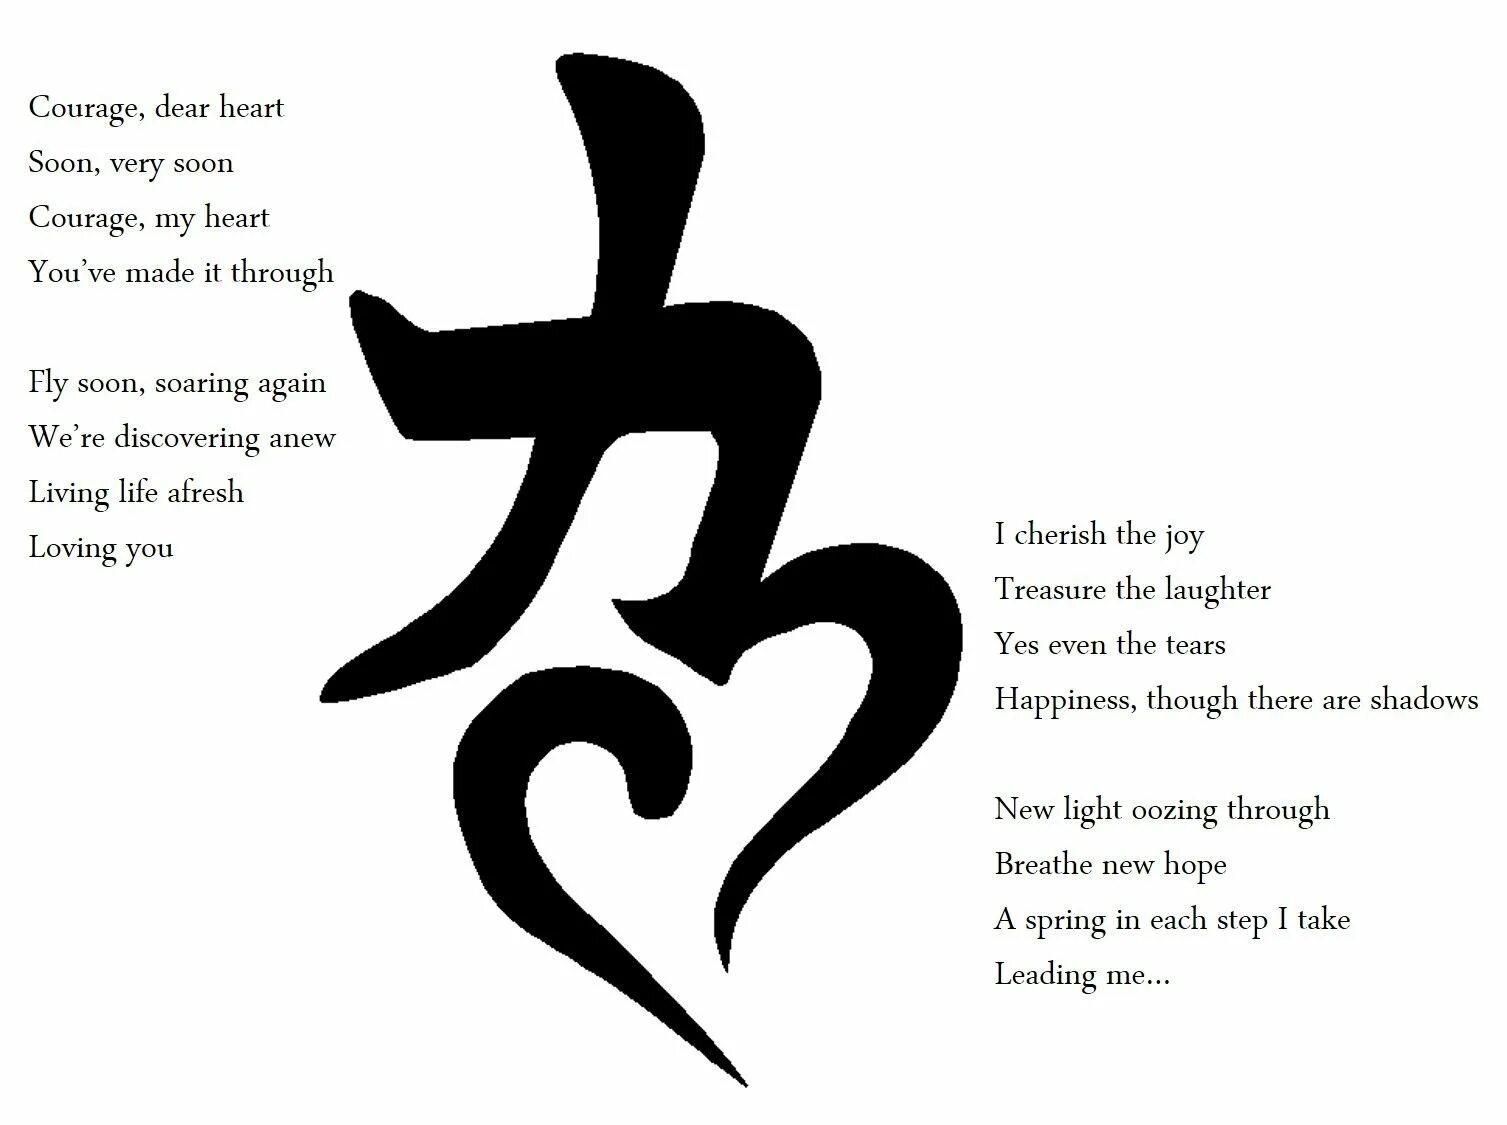 Courage, dear heart
Soon, very soon
Courage, my heart
You've made it through
Fly soon, soaring again
We're discovering anew
Living life afresh
Loving you
I cherish the joy
Treasure the laughter
Yes even the tears
Happiness, though there are shadows
New light oozing through
Breathe new hope
A spring in each step I take
Leading me...